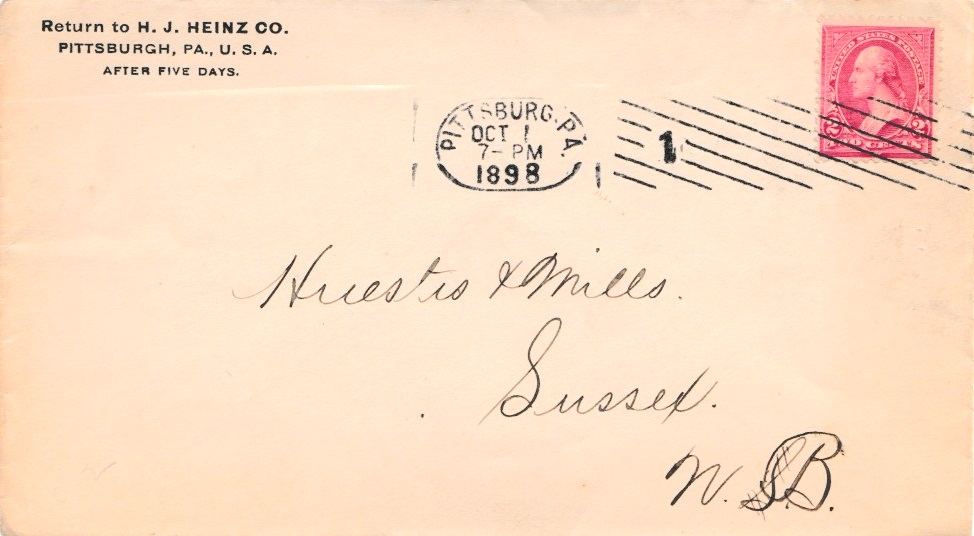 Return to H. J. HEINZ CO.
PITTSBURGH, PA., U. S. A.
AFTER FIVE DAYS.
UNITED STATES POSTAGE
2 2
TWO CENTS
PITTSBURG, PA.
OCT 1
7- PM
1898
1
Huestis & Mills.
Sussex.
N. B.